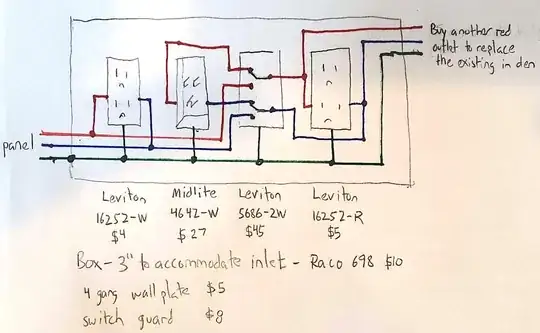 Buy another red
outlet to replace
the existing in den
panel
Leviton
16252-W
$4
Midlite
4642-W
$27
Leviton
5686-2W
$45
Leviton
16252-R
$5
Box - 3" to accommodate inlet - Raco 698 $10
4 gang wall plate $5
switch guard $8